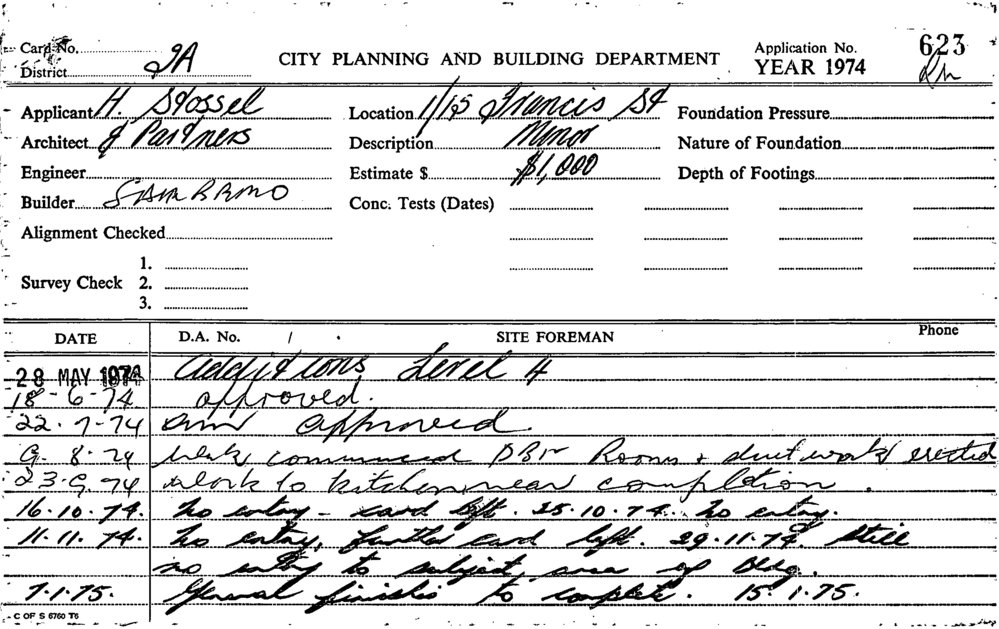 Card No. CITY PLANNING AND BUILDING DEPARTMENT Application No. 623
District 2A YEAR 1974
Applicant H. Stossel Location 1/15 Francis St Foundation Pressure
Architect & Partners Description Minor Nature of Foundation
Engineer Estimate $ $1,000 Depth of Footings
Builder Conc. Tests (Dates)
Alignment Checked
1.
Survey Check 2.
3.
DATE D.A. No. / SITE FOREMAN Phone
28 MAY 1974 Additions Level 4
18-6-74 approved.
22.7-74 approved
9. 8. 74 Work commenced Rooms + duct work erected
23.9.74 work to kitchen near completion.
16.10.74. No entry - card left. 25.10.74. No entry.
11.11.74. No entry, further card left. 29.11.74. Still
no entry to subject area of Bldg.
7.1.75. General finishes to complete. 15.1.75.
C OF S 6760 T6